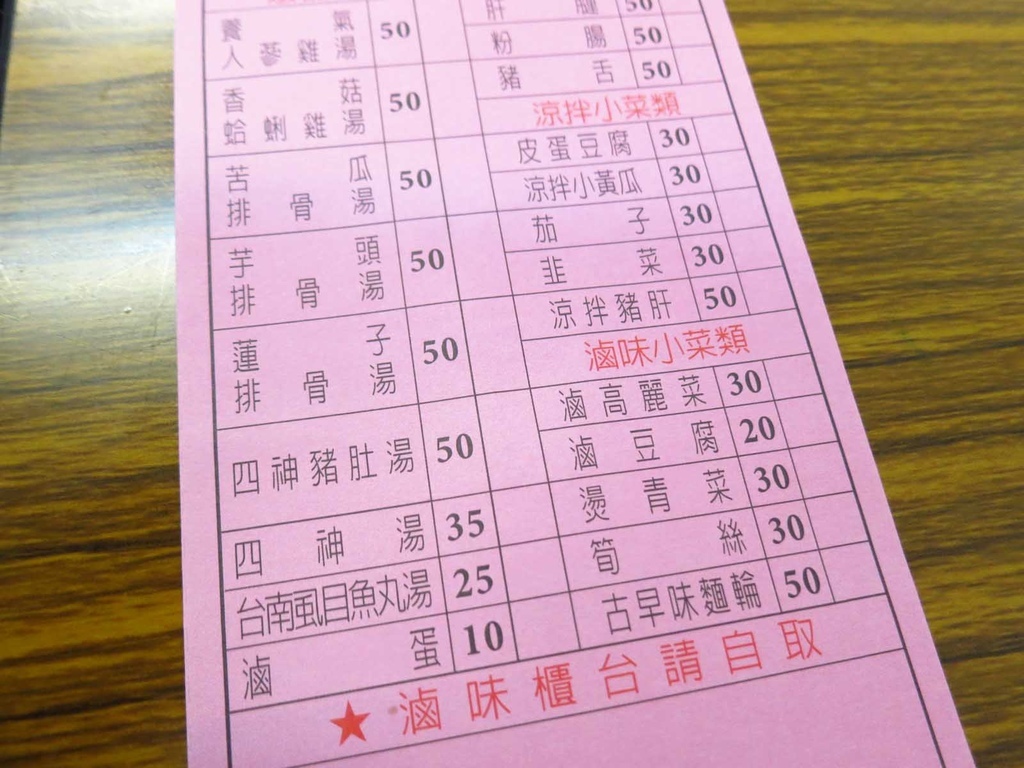 養氣
人蔘雞湯 50
香菇
蛤蜊雞湯 50
苦瓜
排骨湯 50
芋頭
排骨湯 50
蓮子
排骨湯 50
四神豬肚湯 50
四神湯 35
台南虱目魚丸湯 25
滷蛋 10
肝腱 50
粉腸 50
豬舌 50
涼拌小菜類
皮蛋豆腐 30
涼拌小黃瓜 30
茄子 30
韭菜 30
涼拌豬肝 50
滷味小菜類
滷高麗菜 30
滷豆腐 20
燙青菜 30
筍絲 30
古早味麵輪 50
★滷味櫃台請自取